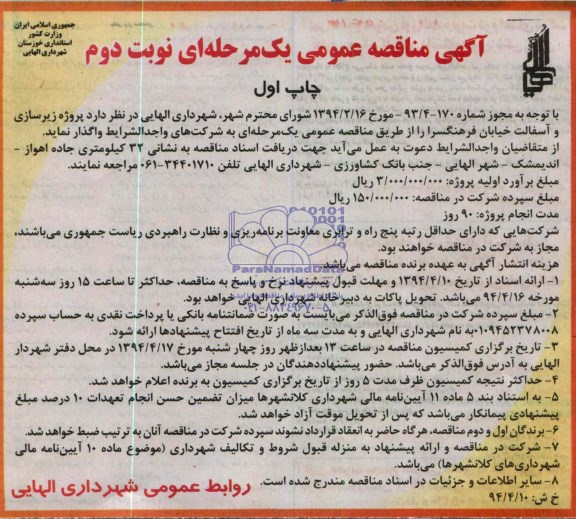 جمهوری اسلامی ایران
وزارت کشور
استانداری خوزستان
شهرداری الهایی
آگهی مناقصه عمومی یک‌مرحله‌ای نوبت دوم
چاپ اول
با توجه به مجوز شماره ۱۷۰-۹۳/۴ - مورخ ۱۳۹۴/۲/۱۶ شورای محترم شهر، شهرداری الهایی در نظر دارد پروژه زیرسازی
و آسفالت خیابان فرهنگسرا را از طریق مناقصه عمومی یک‌مرحله‌ای به شرکت‌های واجدالشرایط واگذار نماید.
از متقاضیان واجدالشرایط دعوت به عمل می‌آید جهت دریافت اسناد مناقصه به نشانی ۳۲ کیلومتری جاده اهواز -
اندیمشک - شهر الهایی - جنب بانک کشاورزی - شهرداری الهایی تلفن ۳۴۴۰۱۷۱۰-۰۶۱ مراجعه نمایند.
مبلغ برآورد اولیه پروژه: ۳/۰۰۰/۰۰۰/۰۰۰ ریال
مبلغ سپرده شرکت در مناقصه: ۱۵۰/۰۰۰/۰۰۰ ریال
مدت انجام پروژه: ۹۰ روز
شرکت‌هایی که دارای حداقل رتبه پنج راه و ترابری معاونت برنامه‌ریزی و نظارت راهبردی ریاست جمهوری می‌باشند،
مجاز به شرکت در مناقصه خواهند بود.
هزینه انتشار آگهی به عهده برنده مناقصه می‌باشد.
۱- ارائه اسناد از تاریخ ۱۳۹۴/۴/۱۰ و مهلت قبول پیشنهاد نرخ و پاسخ به مناقصه، حداکثر تا ساعت ۱۵ روز سه‌شنبه
مورخه ۹۴/۴/۱۶ می‌باشد. تحویل پاکات به دبیرخانه شهرداری الهایی خواهد بود.
۲- مبلغ سپرده شرکت در مناقصه فوق‌الذکر می‌بایست به صورت ضمانتنامه بانکی یا پرداخت نقدی به حساب سپرده
۰۱۰۹۴۵۲۳۷۸۰۰۸ به نام شهرداری الهایی و به مدت سه ماه از تاریخ افتتاح پیشنهادها ارائه شود.
۳- تاریخ برگزاری کمیسیون مناقصه در ساعت ۱۳ بعدازظهر روز چهار شنبه مورخ ۱۳۹۴/۴/۱۷ در محل دفتر شهردار
الهایی به آدرس فوق‌الذکر می‌باشد. حضور پیشنهاددهندگان در جلسه مجاز می‌باشد.
۴- حداکثر نتیجه کمیسیون ظرف مدت ۵ روز از تاریخ برگزاری کمیسیون به برنده اعلام خواهد شد.
۵- به استناد بند ۵ ماده ۱۱ آیین‌نامه مالی شهرداری کلانشهرها میزان تضمین حسن انجام تعهدات ۱۰ درصد مبلغ
پیشنهادی پیمانکار می‌باشد که پس از تحویل موقت آزاد خواهد شد.
۶- برندگان اول و دوم مناقصه، هرگاه حاضر به انعقاد قرارداد نشوند سپرده شرکت در مناقصه آنان به ترتیب ضبط خواهد شد.
۷- شرکت در مناقصه و ارائه پیشنهاد به منزله قبول شروط و تکالیف شهرداری (موضوع ماده ۱۰ آیین‌نامه مالی
شهرداری‌های کلانشهرها) می‌باشد.
۸- سایر اطلاعات و جزئیات در اسناد مناقصه مندرج شده است.
خ ش: ۹۴/۴/۱۰
روابط عمومی شهرداری الهایی
ParsNamadData